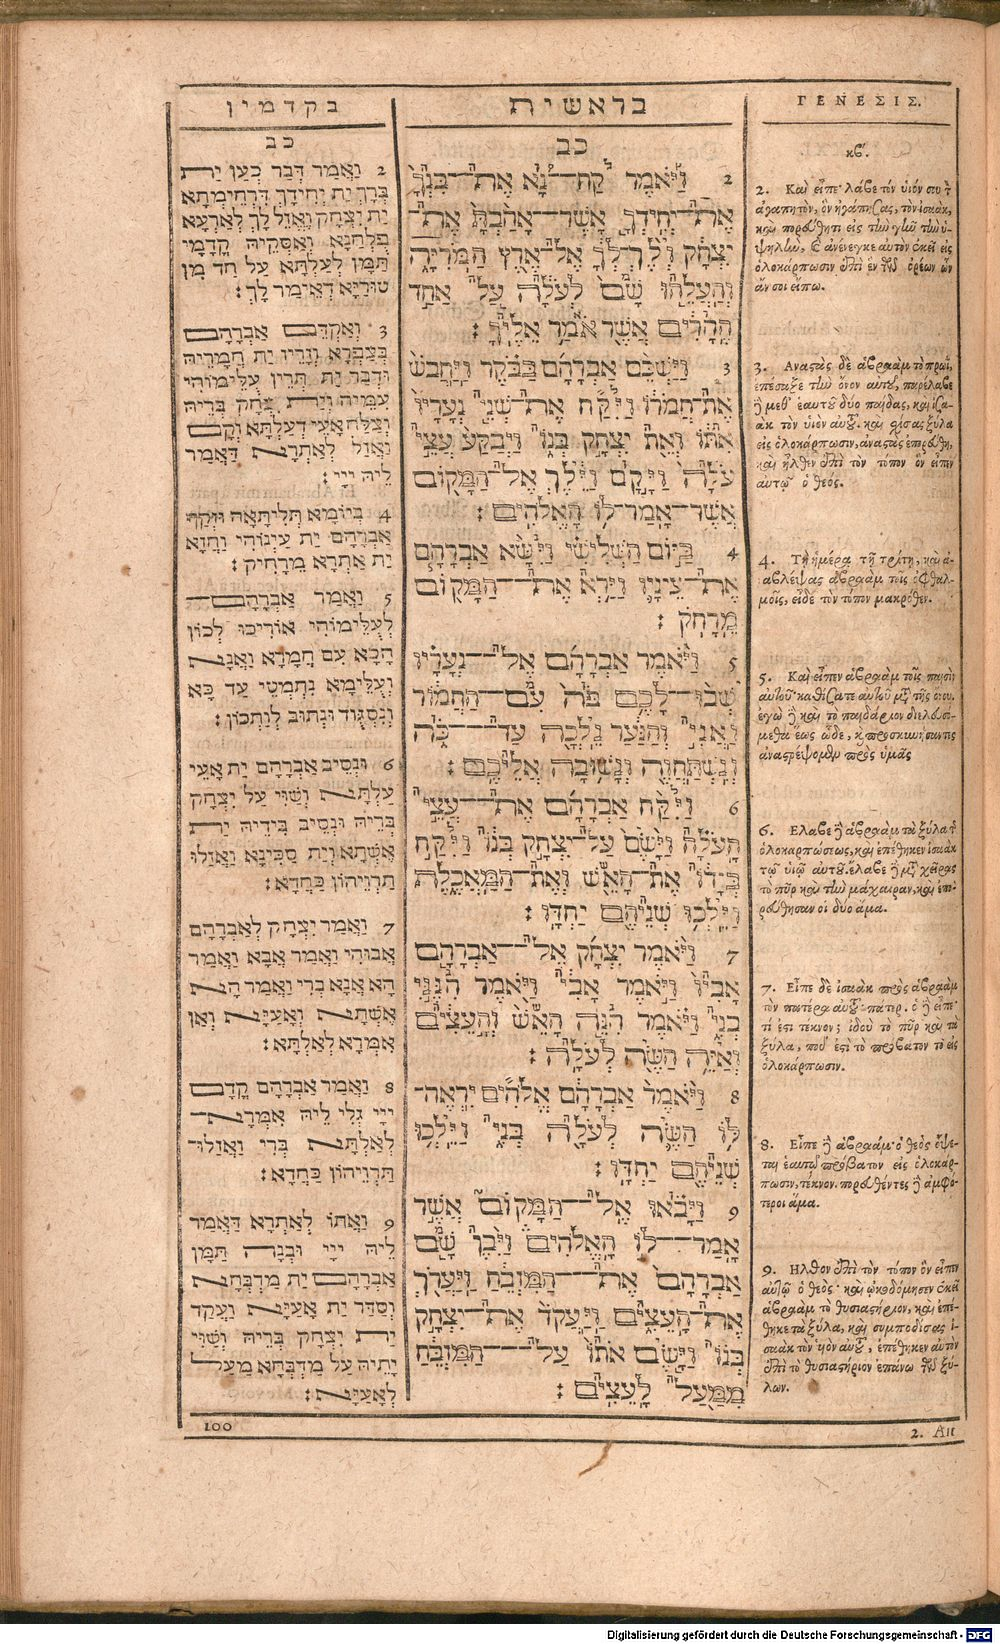 בקדמין
בראשית
ΓΕΝΕΣΙΣ.
כב
2 וַאֲמַר דְּבַר כְּעַן יַת
בְּרָךְ יַת יְחִידָךְ דִּרְחֵימְתָּא
יַת יִצְחָק וֶאֱזֵל לָךְ לְאַרְעָא
פּוּלְחָנָא וְאַסֵּקְיהּ קֳדָמַי
תַּמָּן לַעֲלָתָא עַל חַד מִן
טוּרַיָּא דְאֵימַר לָךְ׃
3 וְאַקְדֵּם אַבְרָהָם
בְּצַפְרָא וְזָרֵיז יַת חֲמָרֵיהּ
וּדְבַר יַת תְּרֵין עוּלֵימוֹהִי
עִמֵּיהּ וְיַת יִצְחָק בְּרֵיהּ
וְצַלַּח אָעֵי דַעֲלָתָא וְקָם
וַאֲזַל לְאַתְרָא דַּאֲמַר
לֵיהּ יְיָי׃
4 בְּיוֹמָא תְּלִיתָאָה וּזְקַף
אַבְרָהָם יַת עֵינוֹהִי וַחֲזָא
יַת אַתְרָא מֵרָחִיק׃
5 וַאֲמַר אַבְרָהָם
לְעֻלֵּימוֹהִי אוֹרִיכוּ לְכוֹן
הָכָא עִם חֲמָרָא וַאֲנָא
וְעֻלֵּימָא נִתְמְטֵי עַד כָּא
וְנִסְגּוּד וּנְתוּב לְוָתְכוֹן׃
6 וּנְסֵיב אַבְרָהָם יַת אָעֵי
עֲלָתָא וְשַׁוִּי עַל יִצְחָק
בְּרֵיהּ וּנְסֵיב בִּידֵיהּ יַת
אֶשָּׁתָא וְיַת סַכִּינָא וַאֲזַלוּ
תַּרְוֵיהוֹן כַּחֲדָא׃
7 וַאֲמַר יִצְחָק לְאַבְרָהָם
אֲבוּהִי וַאֲמַר אַבָּא וַאֲמַר
הָא אֲנָא בְרִי וַאֲמַר הָא
אֶשָּׁתָא וְאָעַיָּא וְאָן
אִמְּרָא לַאֲלָתָא׃
8 וַאֲמַר אַבְרָהָם קֳדָם
יְיָי גְּלֵי לֵיהּ אִמְּרָא
לַאֲלָתָא בְּרִי וַאֲזַלוּ
תַּרְוֵיהוֹן כַּחֲדָא׃
9 וַאֲתוֹ לְאַתְרָא דַּאֲמַר
לֵיהּ יְיָי וּבְנָה תַּמָּן
אַבְרָהָם יַת מַדְבְּחָא
וְסַדַּר יַת אָעַיָּא וַעֲקַד
יַת יִצְחָק בְּרֵיהּ וְשַׁוִּי
יָתֵיהּ עַל מַדְבְּחָא מֵעַל
לְאָעַיָּא׃
כב
2 וַיֹּאמֶר קַח־נָא אֶת־בִּנְךָ
אֶת־יְחִידְךָ אֲשֶׁר־אָהַבְתָּ אֶת־
יִצְחָק וְלֶךְ־לְךָ אֶל־אֶרֶץ הַמֹּרִיָּה
וְהַעֲלֵהוּ שָׁם לְעֹלָה עַל אַחַד
הֶהָרִים אֲשֶׁר אֹמַר אֵלֶיךָ׃
3 וַיַּשְׁכֵּם אַבְרָהָם בַּבֹּקֶר וַיַּחֲבֹשׁ
אֶת־חֲמֹרוֹ וַיִּקַּח אֶת־שְׁנֵי נְעָרָיו
אִתּוֹ וְאֵת יִצְחָק בְּנוֹ וַיְבַקַּע עֲצֵי
עֹלָה וַיָּקָם וַיֵּלֶךְ אֶל־הַמָּקוֹם
אֲשֶׁר־אָמַר־לוֹ הָאֱלֹהִים׃
4 בַּיּוֹם הַשְּׁלִישִׁי וַיִּשָּׂא אַבְרָהָם
אֶת־עֵינָיו וַיַּרְא אֶת־הַמָּקוֹם
מֵרָחֹק׃
5 וַיֹּאמֶר אַבְרָהָם אֶל־נְעָרָיו
שְׁבוּ־לָכֶם פֹּה עִם־הַחֲמוֹר
וַאֲנִי וְהַנַּעַר נֵלְכָה עַד־כֹּה
וְנִשְׁתַּחֲוֶה וְנָשׁוּבָה אֲלֵיכֶם׃
6 וַיִּקַּח אַבְרָהָם אֶת־עֲצֵי
הָעֹלָה וַיָּשֶׂם עַל־יִצְחָק בְּנוֹ וַיִּקַּח
בְּיָדוֹ אֶת־הָאֵשׁ וְאֶת־הַמַּאֲכֶלֶת
וַיֵּלְכוּ שְׁנֵיהֶם יַחְדָּו׃
7 וַיֹּאמֶר יִצְחָק אֶל־אַבְרָהָם
אָבִיו וַיֹּאמֶר אָבִי וַיֹּאמֶר הִנֶּנִּי
בְנִי וַיֹּאמֶר הִנֵּה הָאֵשׁ וְהָעֵצִים
וְאַיֵּה הַשֶּׂה לְעֹלָה׃
8 וַיֹּאמֶר אַבְרָהָם אֱלֹהִים יִרְאֶה־
לּוֹ הַשֶּׂה לְעֹלָה בְּנִי וַיֵּלְכוּ
שְׁנֵיהֶם יַחְדָּו׃
9 וַיָּבֹאוּ אֶל־הַמָּקוֹם אֲשֶׁר
אָמַר־לוֹ הָאֱלֹהִים וַיִּבֶן שָׁם
אַבְרָהָם אֶת־הַמִּזְבֵּחַ וַיַּעֲרֹךְ
אֶת־הָעֵצִים וַיַּעֲקֹד אֶת־יִצְחָק
בְּנוֹ וַיָּשֶׂם אֹתוֹ עַל־הַמִּזְבֵּחַ
מִמַּעַל לָעֵצִים׃
κβ'.
2. Καὶ εἶπε· λάβε τὸν υἱόν σου τὸν
ἀγαπητὸν, ὃν ἠγάπησας, τὸν ἰσαὰκ,
καὶ πορεύθητι εἰς τὴν γῆν τὴν ὑ-
ψηλὴν, καὶ ἀνένεγκε αὐτὸν ἐκεῖ εἰς
ὁλοκάρπωσιν ἐπὶ ἓν τῶν ὀρέων ὧν
ἄν σοι εἴπω.
3. Ἀναστὰς δὲ ἀβραὰμ τὸ πρωῒ,
ἐπέσαξε τὴν ὄνον αὐτοῦ, παρέλαβε
δὲ μεθ' ἑαυτοῦ δύο παῖδας, καὶ ἰσα-
ὰκ τὸν υἱὸν αὐτοῦ. καὶ σχίσας ξύλα
εἰς ὁλοκάρπωσιν, ἀναστὰς ἐπορεύθη,
καὶ ἦλθεν ἐπὶ τὸν τόπον ὃν εἶπεν
αὐτῷ ὁ θεός.
4. Τῇ ἡμέρᾳ τῇ τρίτῃ, καὶ ἀ-
ναβλέψας ἀβραὰμ τοῖς ὀφθαλ-
μοῖς, εἶδε τὸν τόπον μακρόθεν.
5. Καὶ εἶπεν ἀβραὰμ τοῖς παισὶν
αὐτοῦ· καθίσατε αὐτοῦ μετὰ τῆς ὄνου,
ἐγὼ δὲ καὶ τὸ παιδάριον διελευσό-
μεθα ἕως ὧδε, καὶ προσκυνήσαντες
ἀναστρέψομεν πρὸς ὑμᾶς
6. Ἔλαβε δὲ ἀβραὰμ τὰ ξύλα τῆς
ὁλοκαρπώσεως, καὶ ἐπέθηκεν ἰσαὰκ
τῷ υἱῷ αὐτοῦ. ἔλαβε δὲ μετὰ χεῖρας
τὸ πῦρ καὶ τὴν μάχαιραν, καὶ ἐπο-
ρεύθησαν οἱ δύο ἅμα.
7. Εἶπε δὲ ἰσαὰκ πρὸς ἀβραὰμ
τὸν πατέρα αὐτοῦ· πάτερ. ὁ δὲ εἶπε·
τί ἐστι τέκνον; ἰδοὺ τὸ πῦρ καὶ τὰ
ξύλα, ποῦ ἐστὶ τὸ πρόβατον τὸ εἰς
ὁλοκάρπωσιν.
8. Εἶπε δὲ ἀβραάμ· ὁ θεὸς ὄψε-
ται ἑαυτῷ πρόβατον εἰς ὁλοκάρ-
πωσιν, τέκνον. πορευθέντες δὲ ἀμφό-
τεροι ἅμα.
9. Ἦλθον ἐπὶ τὸν τόπον ὃν εἶπεν
αὐτῷ ὁ θεός· καὶ ᾠκοδόμησεν ἐκεῖ
ἀβραὰμ τὸ θυσιαστήριον, καὶ ἐπέ-
θηκε τὰ ξύλα, καὶ συμποδίσας ἰ-
σαὰκ τὸν υἱὸν αὐτοῦ, ἐπέθηκεν αὐτὸν
ἐπὶ τὸ θυσιαστήριον ἐπάνω τῶν ξύ-
λων.
100
2. Αὐ
Digitalisierung gefördert durch die Deutsche Forschungsgemeinschaft - DFG